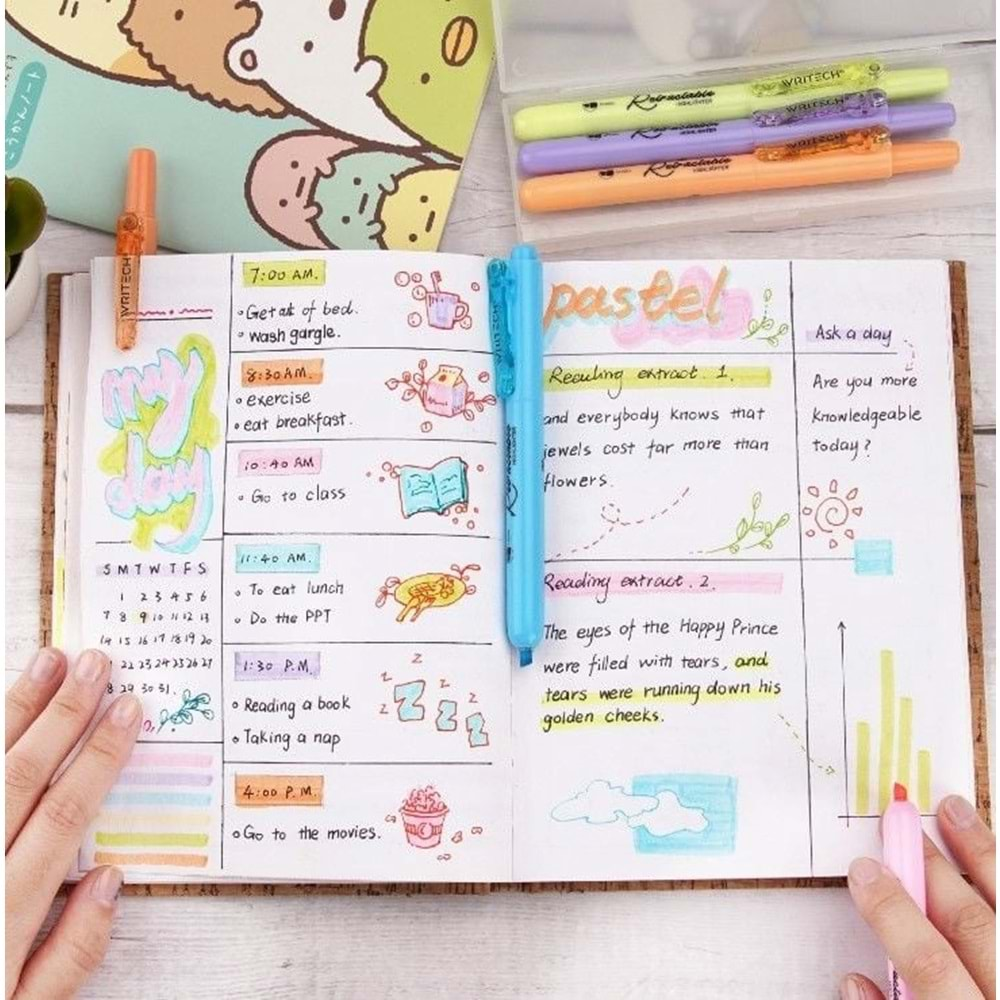 こうかんノート
WRITECH
Retractable
HIGHLIGHTER
WRITECH
Retractable
HIGHLIGHTER
WRITECH
Retractable
HIGHLIGHTER
WRITECH
my
day
S M T W T F S
1 2 3 4 5 6
7 8 9 10 11 12 13
14 15 16 17 18 19 20
1 22 23 24 25 26 27
8 29 30 31.
7:00 AM.
Get out of bed.
wash gargle.
8:30 AM.
exercise
eat breakfast.
10:40 AM
Go to class
11:40 AM.
To eat lunch
Do the PPT
1:30 P.M.
Reading a book
Taking a nap
z
z
z z
Z Z Z
4:00 P.M.
Go to the movies.
WRITECH
Retractable
HIGHLIGHTER
pastel
Reading extract. 1.
and everybody knows that
jewels cost far more than
flowers.
Reading extract. 2.
The eyes of the Happy Prince
were filled with tears, and
tears were running down his
golden cheeks.
Ask a day
Are you more
knowledgeable
today?